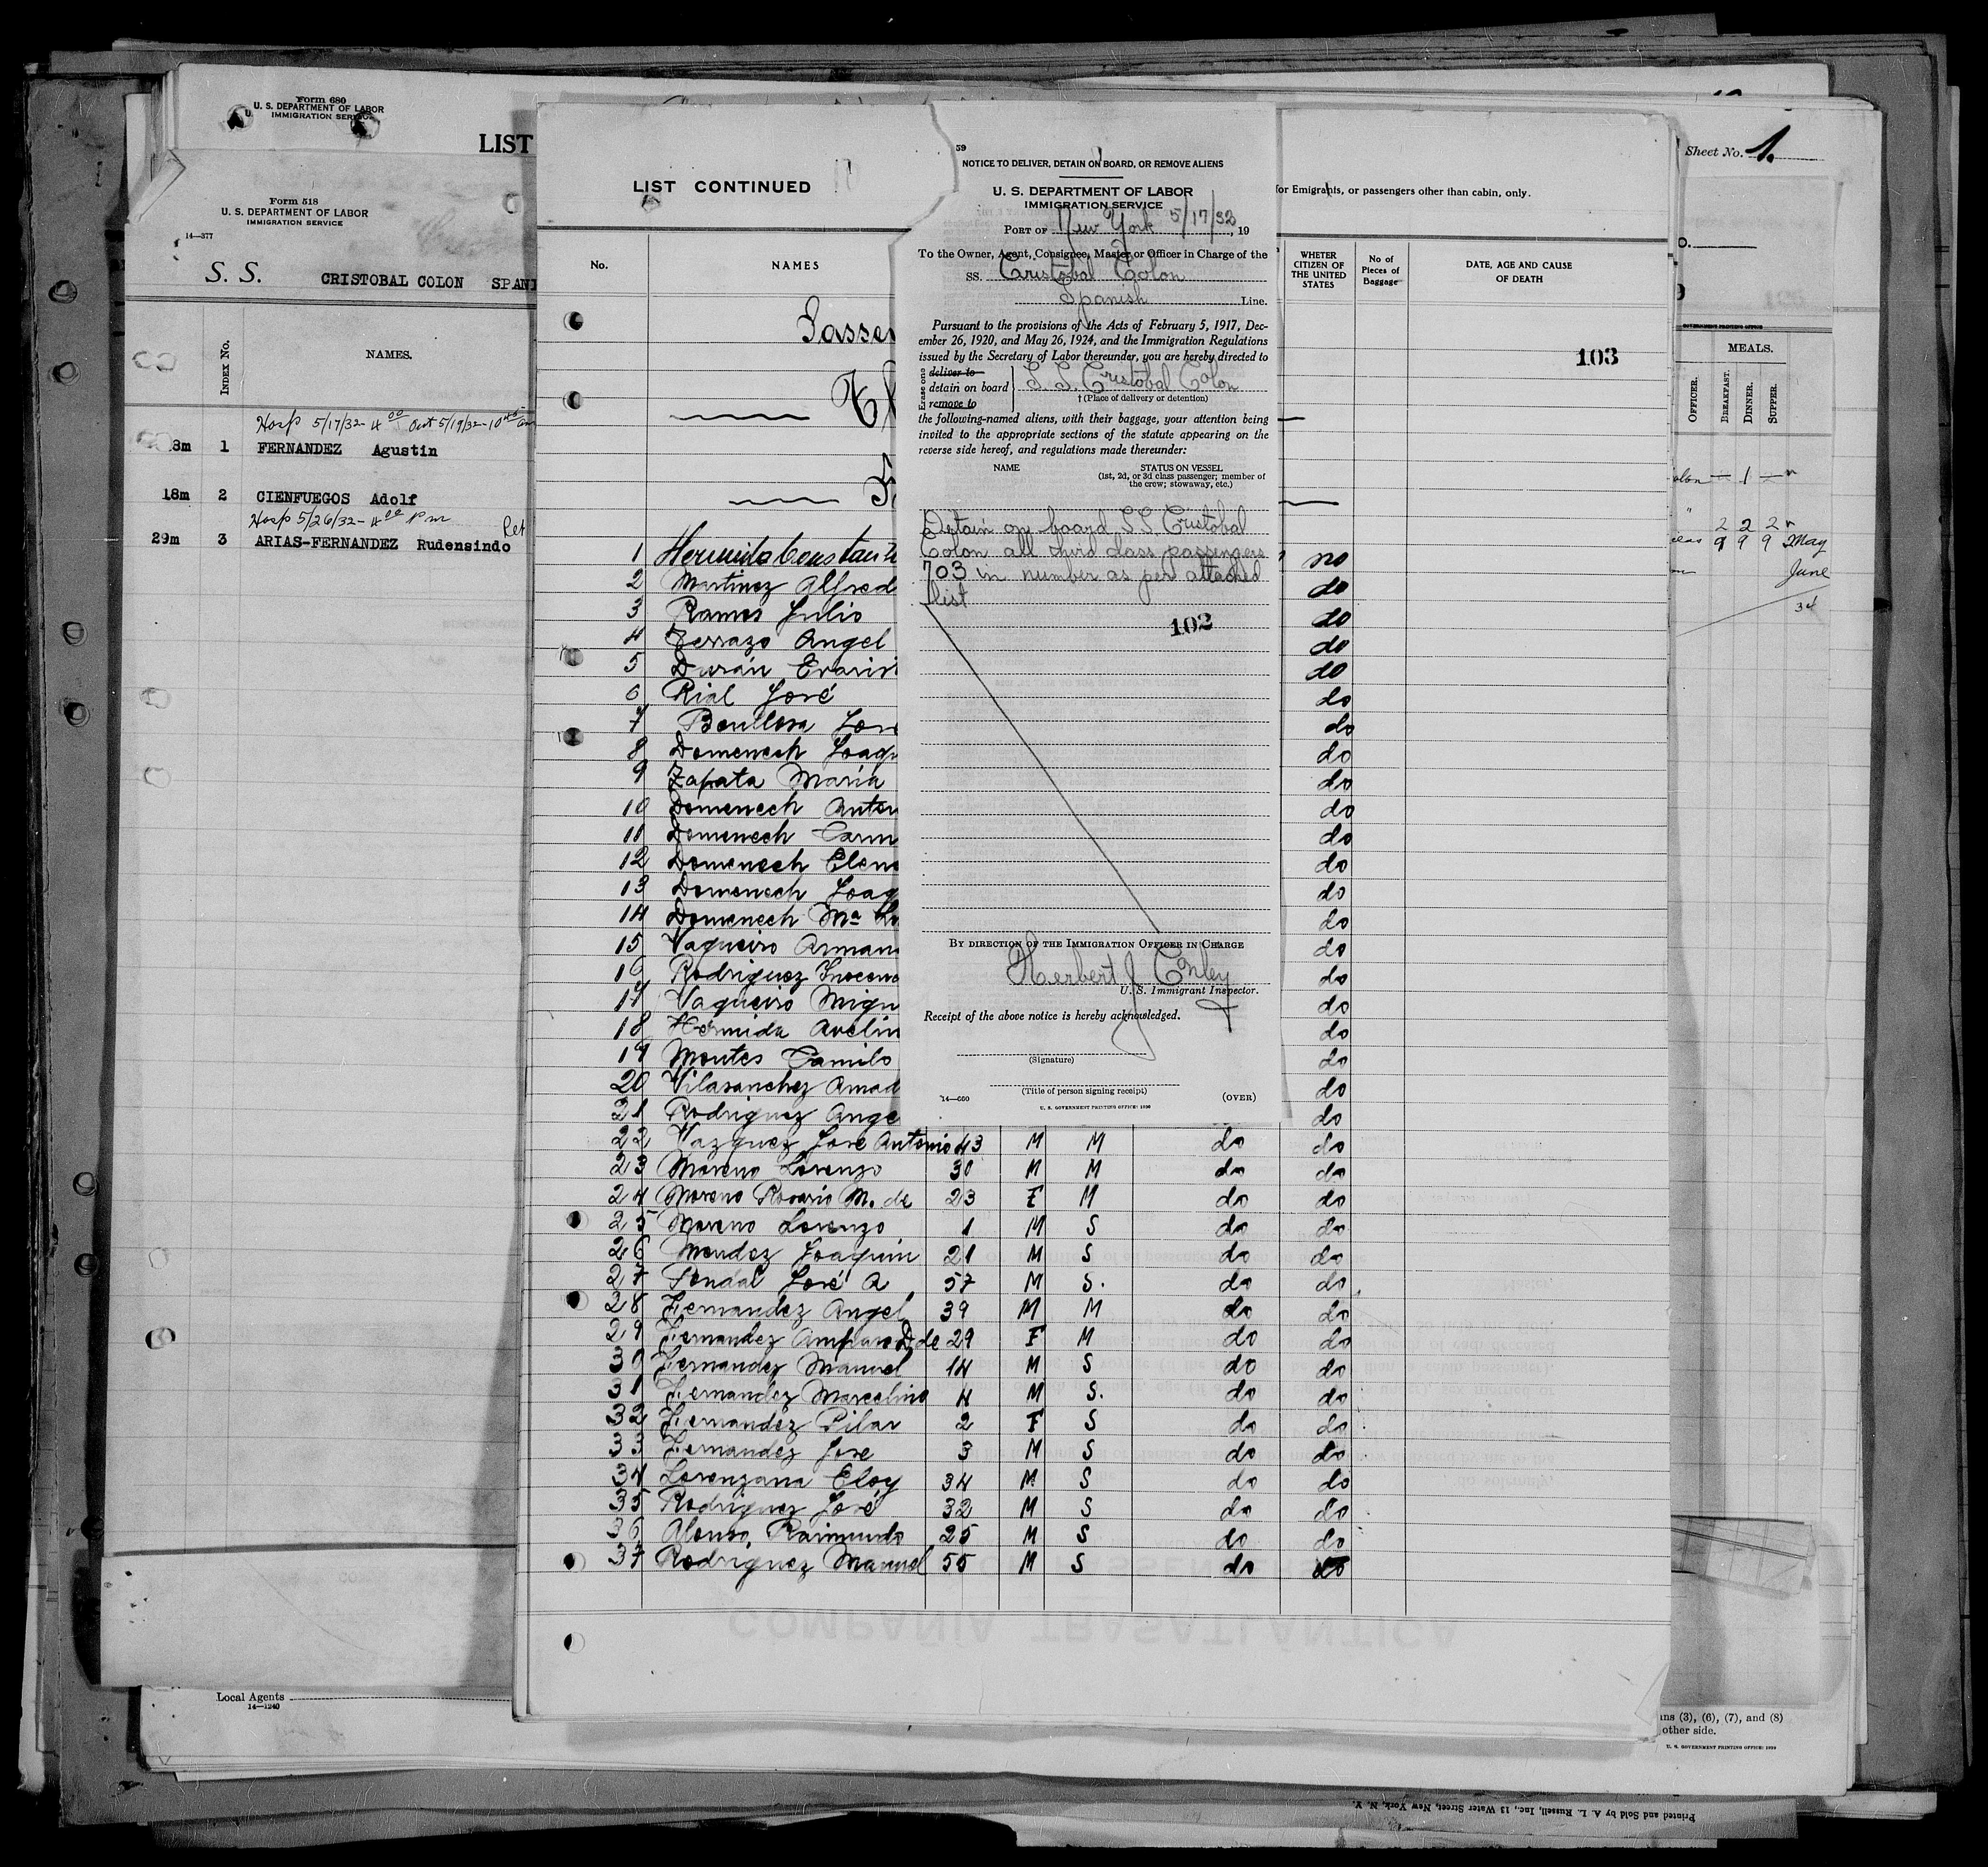 Form 680
U. S. DEPARTMENT OF LABOR
IMMIGRATION SERVICE
LIST
Form 518
U. S. DEPARTMENT OF LABOR
IMMIGRATION SERVICE
14—377
S. S. CRISTOBAL COLON SPANI
INDEX No.
NAMES.
Hosp 5/17/32 - 4 00 Out 5/19/32 - 10 45 am
8m 1 FERNANDEZ Agustin
18m 2 CIENFUEGOS Adolf
Hosp 5/26/32 - 4 00 Pm
29m 3 ARIAS-FERNANDEZ Rudensindo
Local Agents
14—1240
LIST CONTINUED
for Emigrants, or passengers other than cabin, only.
No. NAMES WHETER CITIZEN OF THE UNITED STATES No of Pieces of Baggage DATE, AGE AND CAUSE OF DEATH
103
1 no
2 Martinez Alfred do
3 Ramos Julio do
4 Terrazo Angel do
5 Durán Evarist do
6 Rial José do
7 do
8 Domenech Joaqu do
9 Zapata Maria do
10 Domenech Anton do
11 Domenech Carm do
12 Domenech Elena do
13 Domenech Joaq do
14 Domenech Mª Lo do
15 Vaqueiro Arman do
16 Rodriguez Inocenc do
17 Vaqueiro Migu do
18 Hermida Avelin do
19 Montes Camilo do
20 Vilasanchez Amad do
21 Rodriguez Ange do
22 Vazquez José Antonio 43 M M do do
23 Moreno Lorenzo 30 M M do do
24 Moreno Rosario M. de 23 F M do do
25 Moreno Lorenzo 1 M S do do
26 Mendez Joaquin 21 M S do do
27 José A 57 M S. do do
28 Fernandez Angel 39 M M do do
29 Fernandez Amparo D. de 29 F M do do
30 Fernandez Manuel 14 M S do do
31 Fernandez Marcelino 4 M S. do do
32 Fernandez Pilar 2 F S do do
33 Fernandez Jose 3 M S do do
34 Lorenzana Eloy 34 M S do do
35 Rodriguez José 32 M S do do
36 Alonso Raimundo 25 M S do do
37 Rodriguez Manuel 55 M S do do
COMPAÑIA TRASATLANTICA
59
NOTICE TO DELIVER, DETAIN ON BOARD, OR REMOVE ALIENS
U. S. DEPARTMENT OF LABOR
IMMIGRATION SERVICE
PORT OF New York 5/17/32, 19
To the Owner, Agent, Consignee, Master, or Officer in Charge of the
SS. Cristobal Colon
Spanish Line.
Pursuant to the provisions of the Acts of February 5, 1917, Dec-
ember 26, 1920, and May 26, 1924, and the Immigration Regulations
issued by the Secretary of Labor thereunder, you are hereby directed to
Erase one
deliver to
detain on board S.S. Cristobal Colon
remove to
† (Place of delivery or detention)
the following-named aliens, with their baggage, your attention being
invited to the appropriate sections of the statute appearing on the
reverse side hereof, and regulations made thereunder:
NAME STATUS ON VESSEL
(1st, 2d, or 3d class passenger; member of
the crew; stowaway, etc.)
Detain on board S.S. Cristobal
Colon all third class passengers
703 in number as per attached
list
102
BY DIRECTION OF THE IMMIGRATION OFFICER IN CHARGE
Herbert J Conley
U. S. Immigrant Inspector.
Receipt of the above notice is hereby acknowledged.
(Signature)
(Title of person signing receipt)
14—660 (OVER)
U. S. GOVERNMENT PRINTING OFFICE: 1930
Sheet No. 1.
GOVERNMENT PRINTING OFFICE
MEALS.
OFFICER. BREAKFAST. DINNER. SUPPER.
olon — 1 —
" 2 2 2
9 9 9 May
June
34
ns (3), (6), (7), and (8)
other side.
U. S. GOVERNMENT PRINTING OFFICE: 1930
Printed and Sold by A. L. Russell, Inc., 13 Water Street, New York, N. Y.